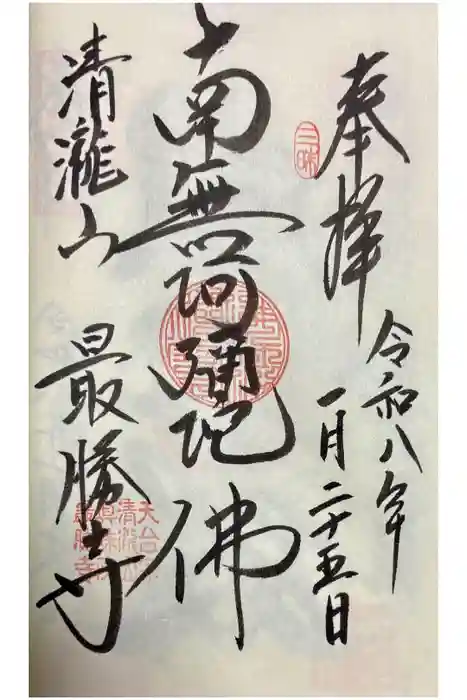 奉拝
令和八年
一月二十五日
三昧
南無阿弥陀佛
清瀧山
最勝寺
天台
清瀧山
最勝寺